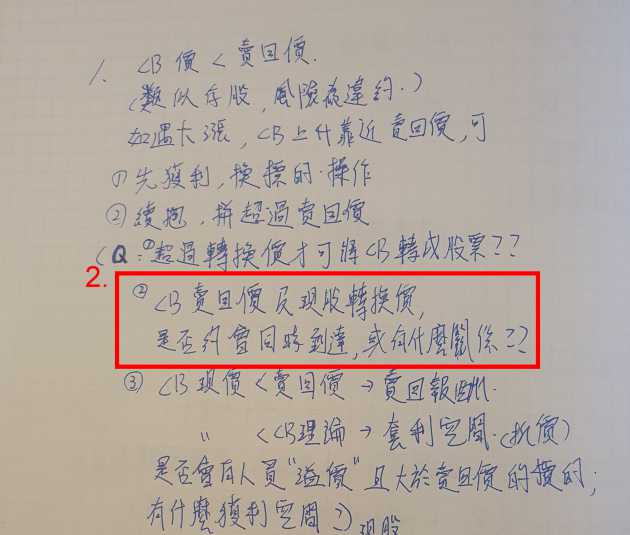 1. CB價<賣回價.
(類似存股,風險為違約.)
如遇大漲,CB上升靠近賣回價,可
①先獲利,換標的操作
②續抱,拼超過賣回價
(Q:①超過轉換價才可將CB轉成股票??
2.
②CB賣回價及現股轉換價,
是否約會同時到達,或有什麼關係??
③CB現價<賣回價→賣回報酬.
〃 <CB理論→套利空間.(折價)
是否會有人買"溢價"且大於賣回價的標的;
有什麼獲利空間?)
現股